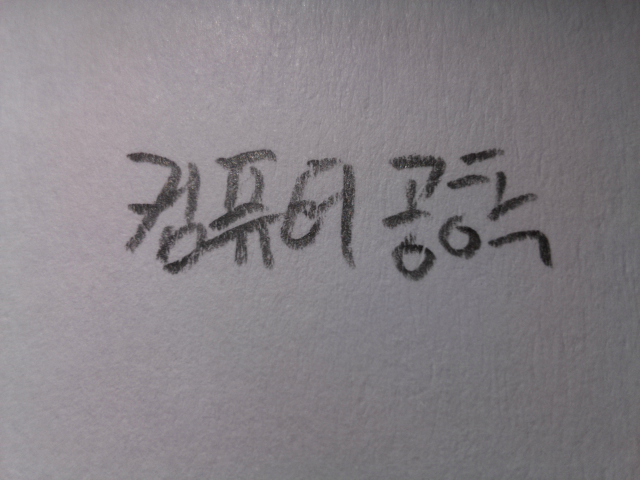 컴퓨터 공학